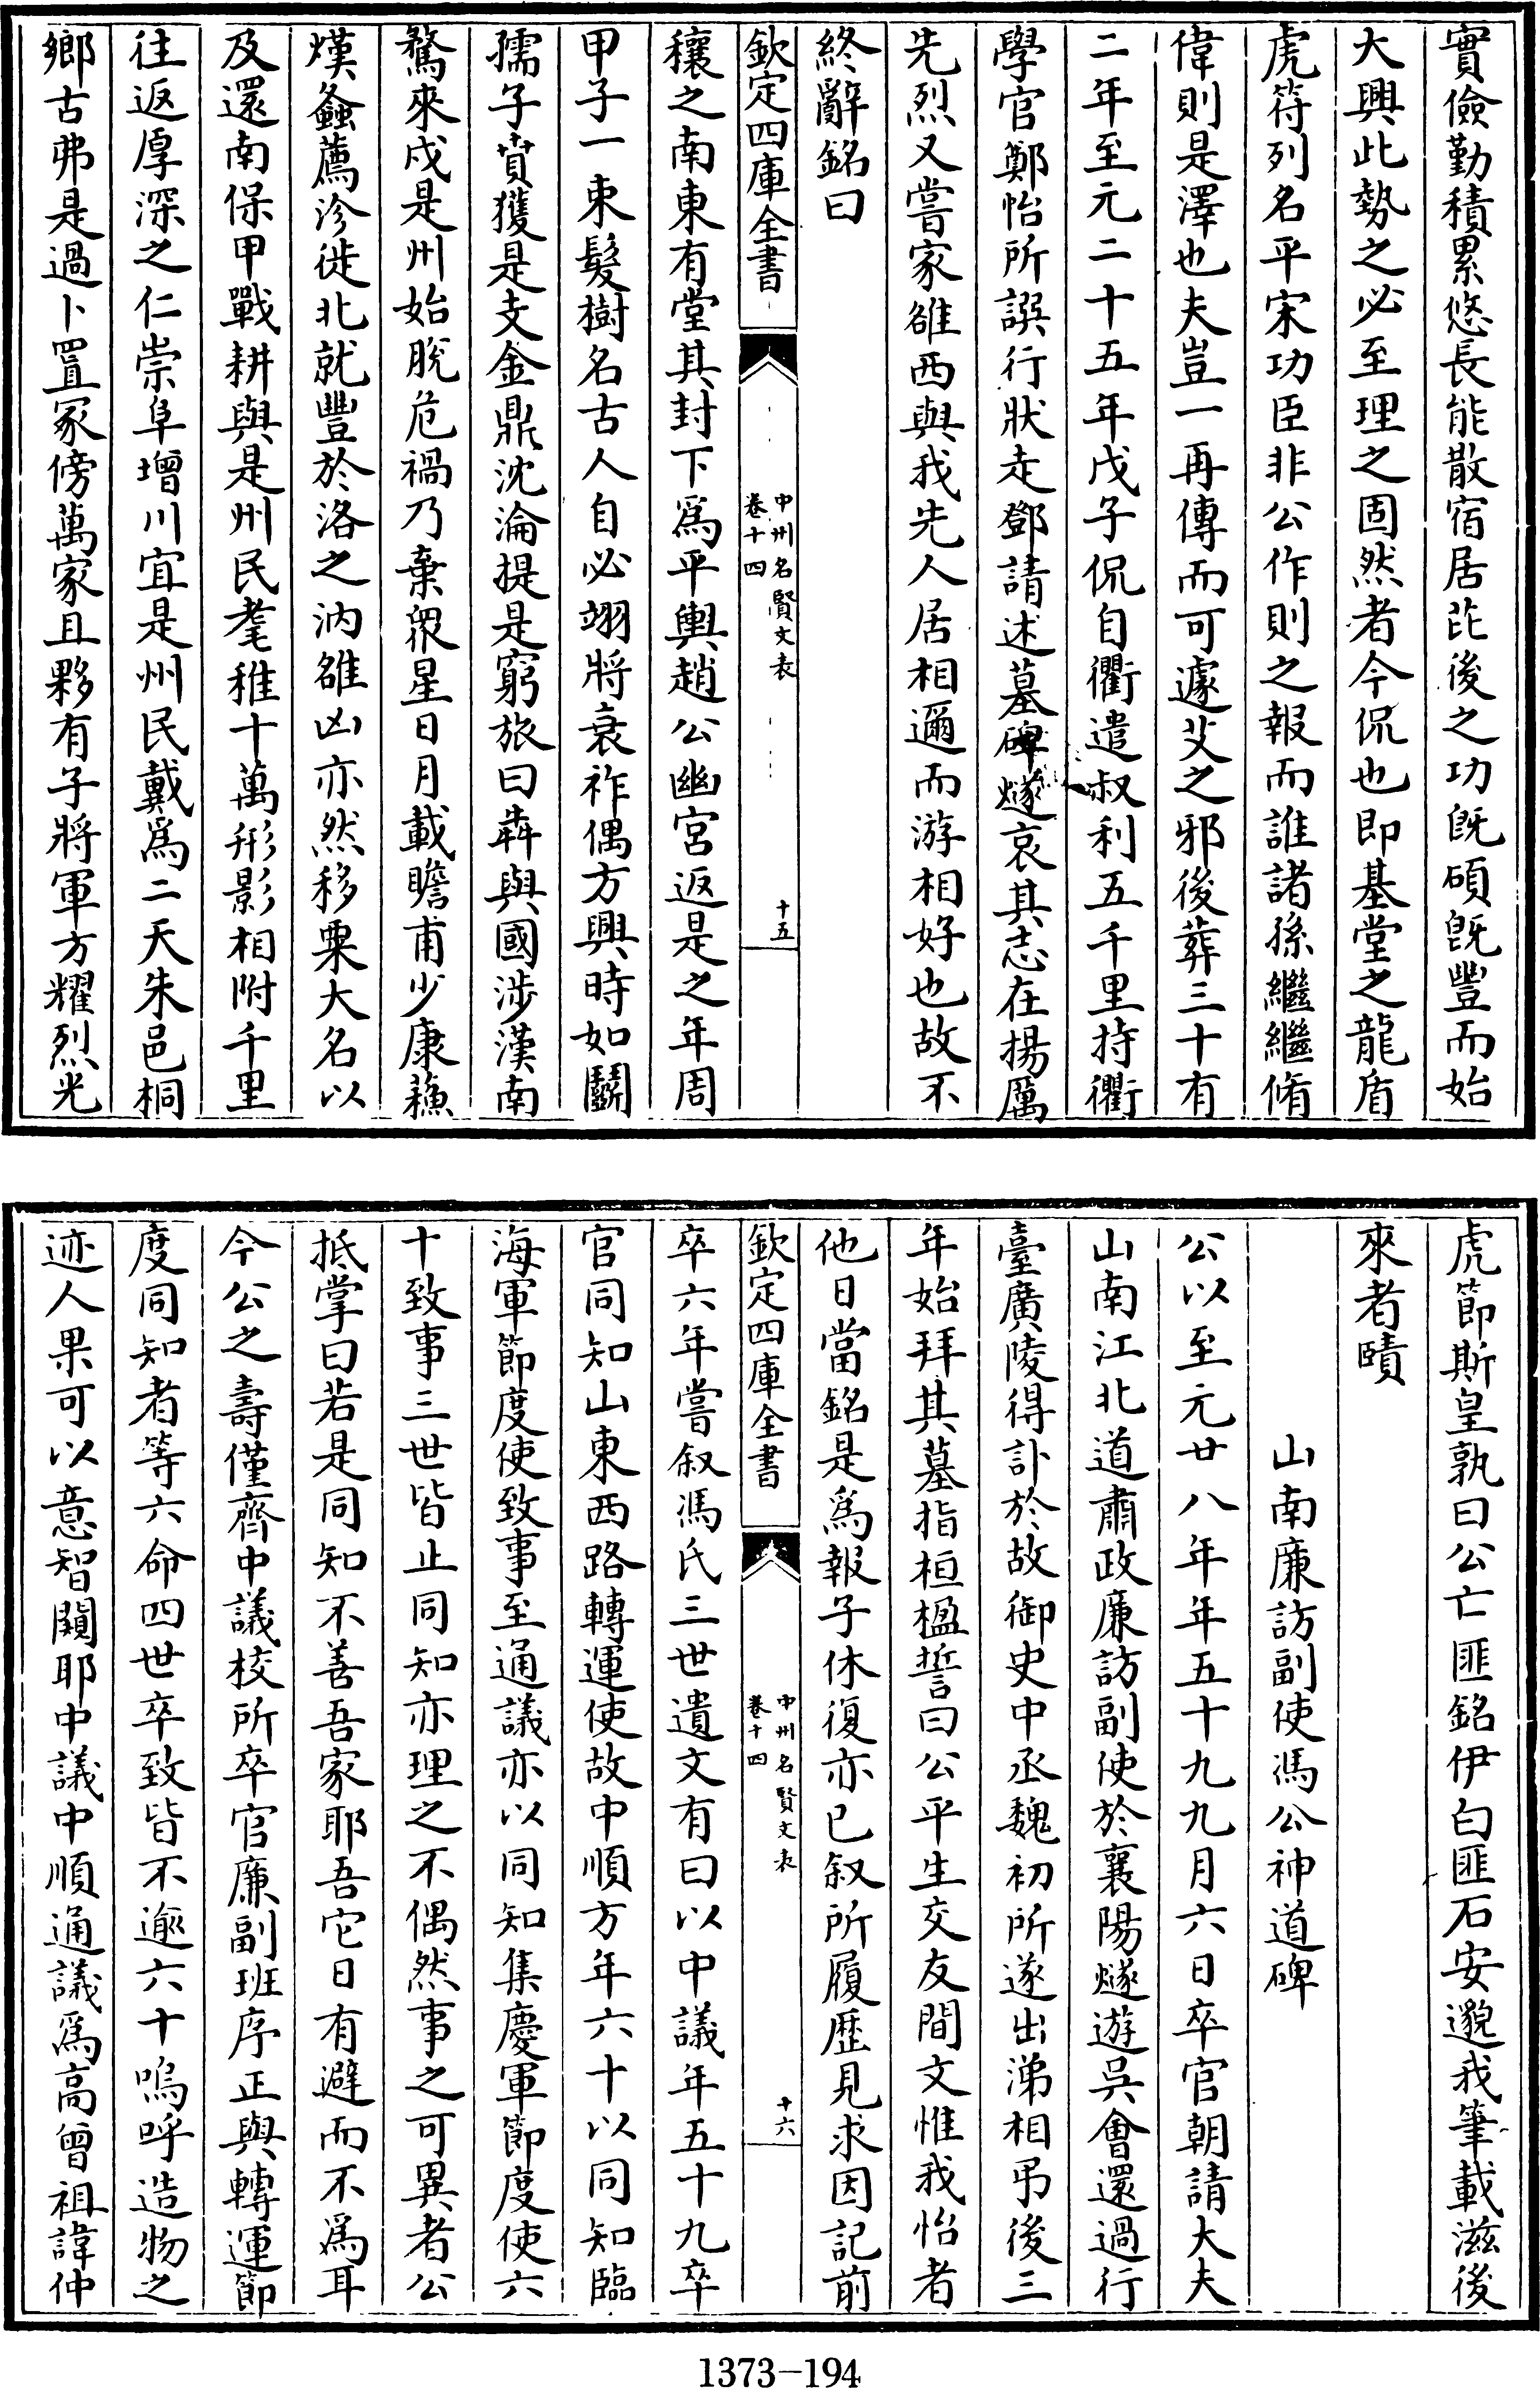 實儉勤積累悠長能散宿居芘後之功既碩既豐而始
大興此勢之必至理之固然者今侃也即基堂之龍盾
虎符列名平宋功臣非公作則之報而誰諸孫繼繼脩
偉則是澤也夫豈一再傳而可遽艾之邪後葬三十有
二年至元二十五年戊子侃自衢遣叔利五千里持衢
學官鄭怡所譔行狀走鄧請述墓碑燧哀其志在揚厲
先烈又嘗家雒西與我先人居相邇而游相好也故不
終辭銘曰
欽定四庫全書
中州名賢文表
卷十四
十五
穰之南東有堂其封下為平輿趙公幽宮返是之年周
甲子一束髮樹名古人自必翊將衰祚偶方興時如鬭
孺子賁獲是支金鼎沈淪提是窮旅曰犇與國涉漢南
騖來戍是州始脫危禍乃棄眾星日月載瞻甫少康蘓
熯螽薦沴徙北就豐於洛之汭雒凶亦然移粟大名以
及還南保甲戰耕與是州民耄稚十萬形影相附千里
往返厚深之仁崇阜增川宜是州民戴為二天朱邑桐
鄉古弗是過卜置冢傍萬家且夥有子將軍方耀烈光
虎節斯皇孰曰公亡匪銘伊白匪石安邈我筆載滋後
來者賾
山南廉訪副使馮公神道碑
公以至元廿八年年五十九九月六日卒官朝請大夫
山南江北道肅政廉訪副使於襄陽燧遊吳會還過行
臺廣陵得訃於故御史中丞魏初所遂出涕相弔後三
年始拜其墓指桓楹誓曰公平生交友間文惟我怡者
他日當銘是為報子休復亦已叙所履歷見求因記前
欽定四庫全書
中州名賢文表
卷十四
十六
卒六年嘗叙馮氏三世遺文有曰以中議年五十九卒
官同知山東西路轉運使故中順方年六十以同知臨
海軍節度使致事至通議亦以同知集慶軍節度使六
十致事三世皆止同知亦理之不偶然事之可異者公
抵掌曰若是同知不善吾家耶吾它日有避而不為耳
今公之壽僅齊中議校所卒官廉副班序正與轉運節
度同知者等六命四世卒致皆不逾六十嗚呼造物之
迹人果可以意智闚耶中議中順通議為高曾祖諱仲
1373-194